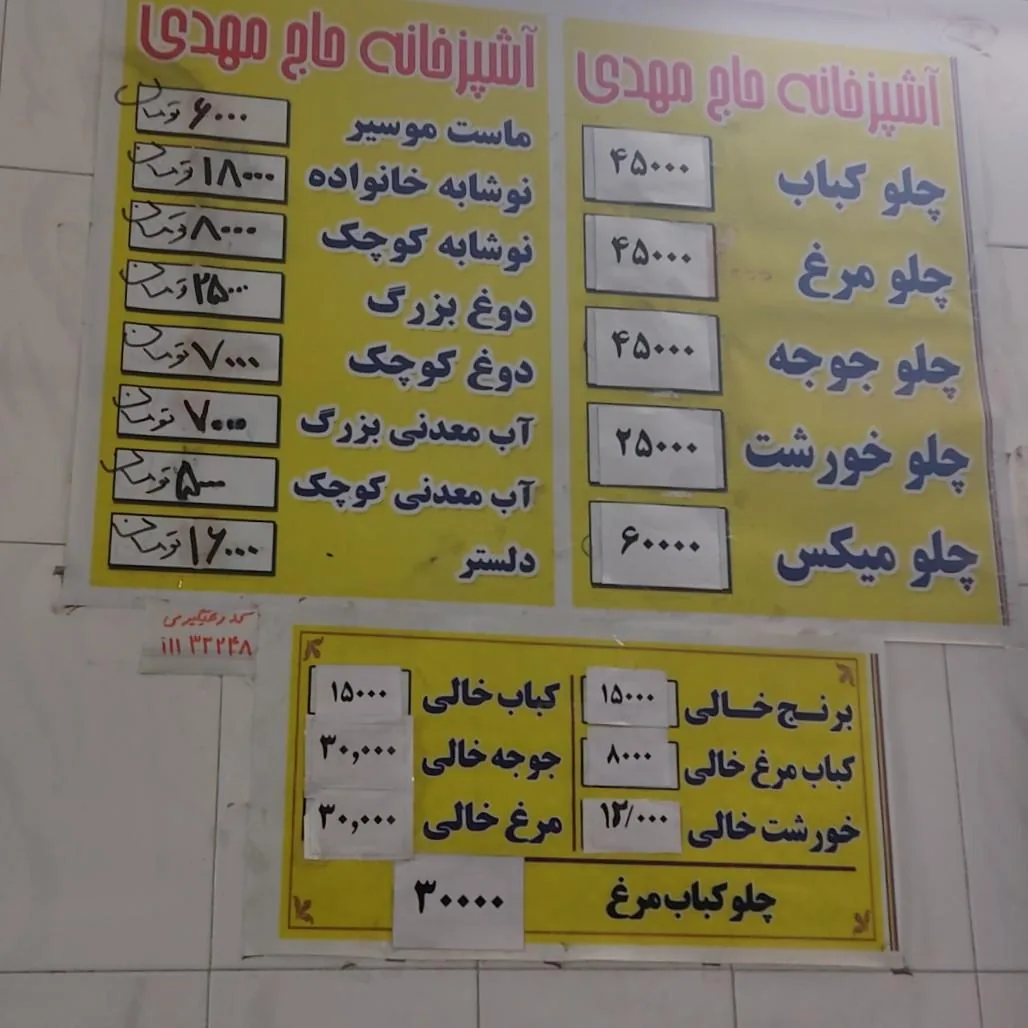 آشپزخانه حاج مهدی
چلو کباب ۴۵۰۰۰
چلو مرغ ۴۵۰۰۰
چلو جوجه ۴۵۰۰۰
چلو خورشت ۲۵۰۰۰
چلو میکس ۶۰۰۰۰
آشپزخانه حاج مهدی
ماست موسیر ۶۰۰۰ تومان
نوشابه خانواده ۱۸۰۰۰ تومان
نوشابه کوچک ۸۰۰۰ تومان
دوغ بزرگ ۲۵۰۰۰ تومان
دوغ کوچک ۷۰۰۰ تومان
آب معدنی بزرگ ۷۰۰۰ تومان
آب معدنی کوچک ۵۰۰۰ تومان
دلستر ۱۶۰۰۰ تومان
برنج خالی ۱۵۰۰۰ کباب خالی ۱۵۰۰۰
کباب مرغ خالی ۸۰۰۰ جوجه خالی ۳۰,۰۰۰
خورشت خالی ۱۲/۰۰۰ مرغ خالی ۳۰,۰۰۰
چلو کباب مرغ ۳۰۰۰۰